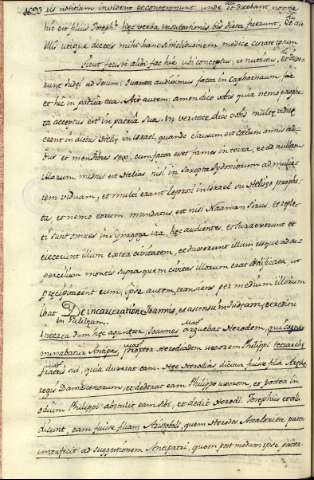 eos iustitiam invidentes contemnerent unde dicebant nonne
hic est filius Ioseph? hęc verba mutationis his dicta fuerunt. Et ait
illis utique dicetis mihi hanc similitudinem medice cura te ipsum
Sicut fecisti alibi fac hic ubi conceptus, et nutritus, et
sunt Iudęi ad Dnum: Quanta audivimus facta in Capharnaum fac
et hic in patria tua. Ait autem: amen dico vobis quia nemo prophe
ta acceptus est in patria sua. In veritate dico vobis multę viduę
erant in diebus Helię in Israel quando clausum est cœlum annis tri
bus et mensibus sex, cum facta esset fames in terra, et ad nullam
illarum missus est Helias nisi in Sarepta Sydoniorum ad mulie
rem viduam, et multi erant leprosi in Israel sub Heliseo prophe
ta, et nemo eorum mundatus est nisi Naaman Sirus. et reple
ti sunt omnes in Synagoga ira hęc audientes, et surrexerunt et
eiecerunt illum extra civitatem, et duxerunt illum usque ad su
percilium montis supra quem civitas illorum erat ędificata ut
pręcipitarent eum, ipse autem transiens per medium illorum
ibat. De incarceratione Ioannis, et ascensu in
in Galilęam.
dum hęc aguntur Ioannes arguebat Herodem, qui
minabatur Antipas, propter Herodiadem uxorem Philippi tetrarchę
fratris sui, quia duxerat eam. Hęc Herodias dicitur fuisse filia Aretę
regis Damascenorum, et dederat eam Philippo uxorem, et postea in
odium Philippi abstulit eam sibi, et dedit Herodi. Iosephus et alii
dicunt, eam fuisse filiam Aristoboli quem Herodes Ascalonita pater
interfecit ad suggestionem Antipatri, quem post modum ipse pater